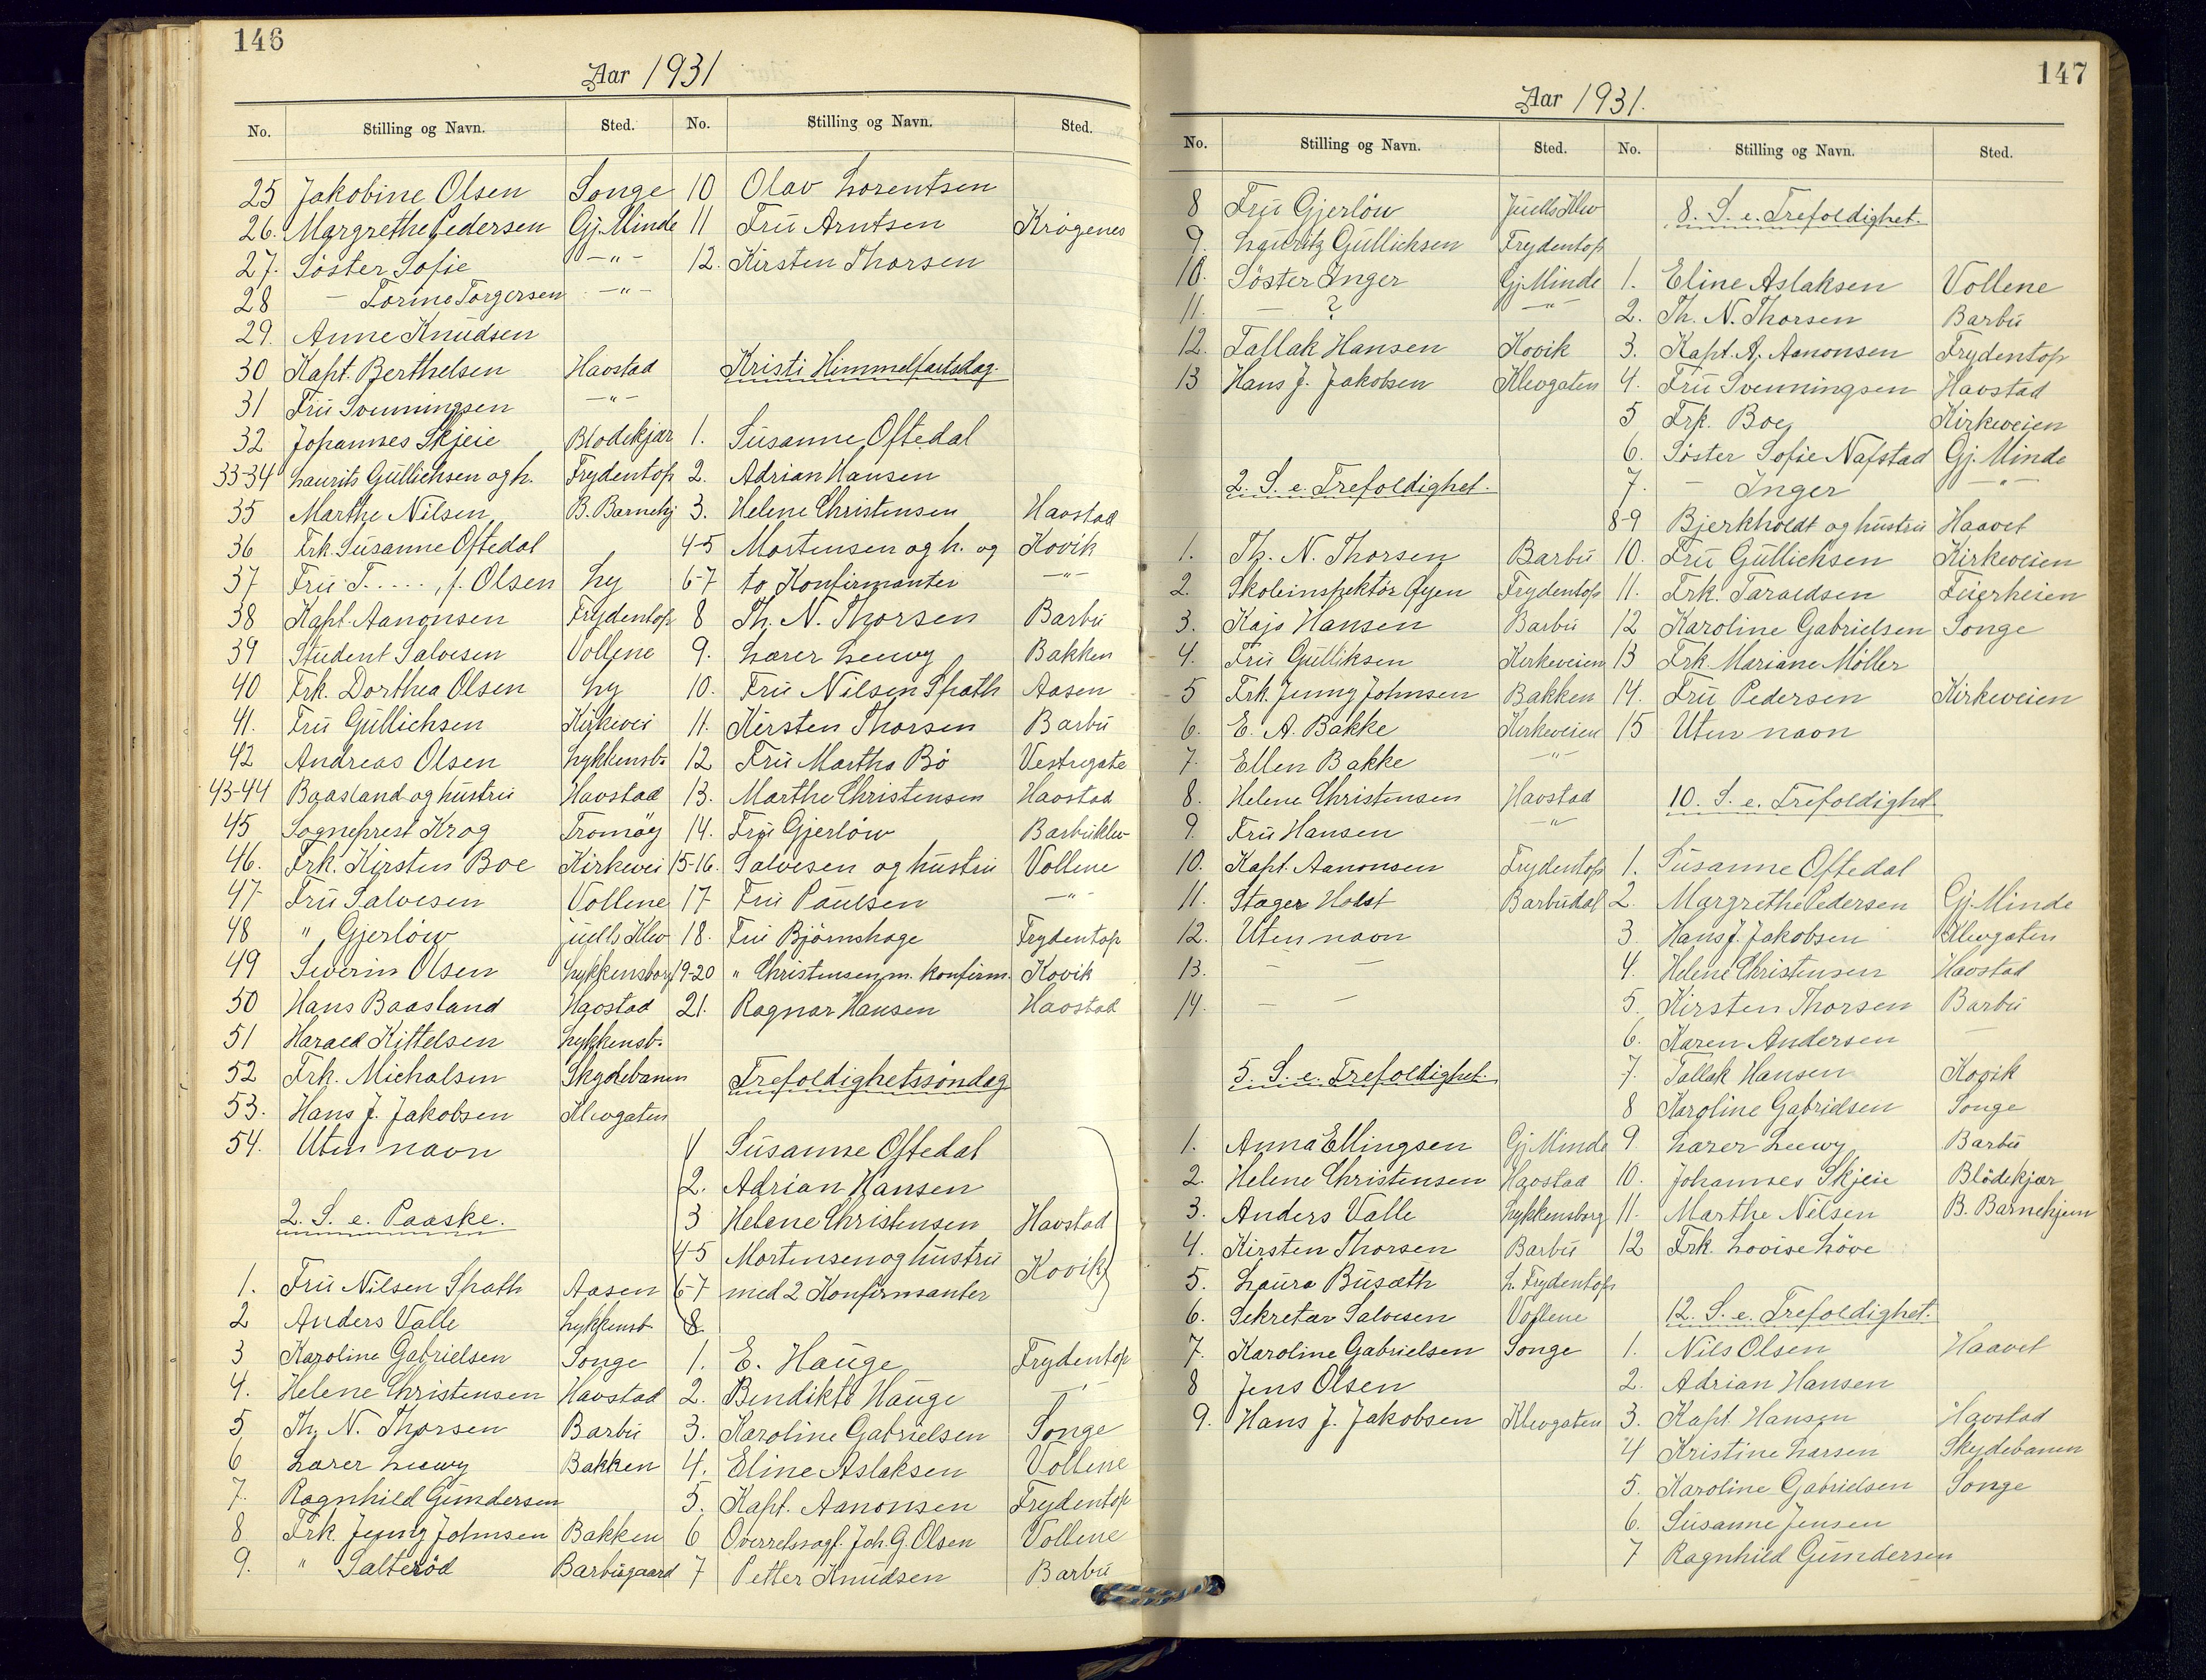 146
Aar 1931
No. Stilling og Navn. Sted.
25 Jakobine Olsen Songe
26. Margrethe Pedersen Gj. Minde
27. Söster Sofie —"—
28 — Torine Torgersen —"—
29. Anne Knudsen
30 Kapt. Berthelsen Havstad
31 Fru Svenningsen —"—
32 Johannes Skjeie Blödekjær
33-34 Laurits Gullichsen og h. Frydentop
35 Marthe Nilsen B. Barnehj
36 Frk. Susanne Oftedal
37 Fru T....., f. Olsen Ly
38 Kapt. Aanonsen Frydentop
39 Student Salvesen Vollene
40 Frk. Dorthea Olsen Ly
41. Fru Gullichsen Kirkevei
42 Andreas Olsen Lykkensb.
43-44 Baasland og hustru Havstad
45 Sogneprest Krog Tromöy
46. Frk. Kirsten Boe Kirkevei
47 Fru Salvesen Vollene
48 " Gjerlöw Juells Klev
49 Severin Olsen Lykkensborg
50 Hans Baasland Havstad
51 Harald Kittelsen Lykkensb.
52 Frk. Michalsen Skydebanen
53. Hans J. Jakobsen Klevgaten
54. Uten navn
2. S. e. Paaske.
1. Fru Nilsen Spath Aasen
2 Anders Valle Lykkensb.
3 Karoline Gabrielsen Songe
4. Helene Christensen Havstad
5 Th. N. Thorsen Barbu
6 Lærer Leewy Bakken
7. Ragnhild Gundersen
8 Frk. Jenny Johnsen Bakken
9. " Salteröd Barbugaard
No. Stilling og Navn. Sted.
10 Olav Lorentsen
11 Fru Arntsen Krögenes
12. Kirsten Thorsen
Kristi Himmelfartsdag.
1. Susanne Oftedal
2. Adrian Hansen
3. Helene Christensen Havstad
4-5 Mortensen og h. og Kovik
6-7 to Konfirmanter —"—
8 Th. N. Thorsen Barbu
9. Lærer Leewy Bakken
10. Fru Nilsen Spath Aasen
11. Kirsten Thorsen Barbu
12 Fru Martha Bö Vestregate
13. Marthe Christensen Havstad
14. Fru Gjerlöw Barbuklev
15-16. Salvesen og hustru Vollene
17 Fru Paulsen —"—
18. Fru Björnshage Frydentop
19-20 " Christensen m. konfirm. Kovik
21. Ragnar Hansen Havstad
Trefoldighetssöndag
1 Susanne Oftedal
2. Adrian Hansen
3 Helene Christensen Havstad
4-5 Mortensen og hustru Kovik
6-7 med 2 Konfirmanter
8
1. E. Hauge Frydentop
2. Bendikte Hauge —"—
3. Karoline Gabrielsen Songe
4. Eline Aslaksen Vollene
5. Kapt. Aanonsen Frydentop
6 Overretssagf. Joh. G. Olsen Vollene
7 Petter Knudsen Barbu
147
Aar 1931.
No. Stilling og Navn. Sted.
8 Fru Gjerlöw Juells Klev
9. Lauritz Gullichsen Frydentop
10. Söster Inger Gj. Minde
11. — ? —"—
12. Tallak Hansen Kovik
13 Hans J. Jakobsen Klevgaten
2. S. e. Trefoldighet.
1. Th. N. Thorsen Barbu
2. Skoleinspektör Öyen Frydentop
3. Kaja Hansen Barbu
4. Fru Gulliksen Kirkeveien
5 Frk. Jenny Johnsen Bakken
6. E. A. Bakke Kirkeveien
7. Ellen Bakke —"—
8. Helene Christensen Havstad
9. Fru Hansen —"—
10. Kapt. Aanonsen Frydentop
11. Stager Holst Barbudal
12. Uten navn
13. — —
14. — —
5. S. e. Trefoldighet.
1. Anna Ellingsen Gj. Minde
2. Helene Christensen Havstad
3. Anders Valle Lykkensborg
4. Kirsten Thorsen Barbu
5. Laura Busæth L. Frydentop
6. Sekretær Salvesen Vollene
7. Karoline Gabrielsen Songe
8 Jens Olsen
9. Hans J. Jakobsen Klevgaten
No. Stilling og Navn. Sted.
8. S. e. Trefoldighet.
1. Eline Aslaksen Vollene
2. Th. N. Thorsen Barbu
3. Kapt. A. Aanonsen Frydentop
4. Fru Svenningsen Havstad
5 Frk. Boe Kirkeveien
6. Söster Sofie Nafstad Gj. Minde
7. — Inger —"—
8-9 Bjerkholdt og hustru Haavet
10. Fru Gullichsen Kirkeveien
11. Frk. Taraldsen Feierheien
12 Karoline Gabrielsen Songe
13 Frk. Mariane Möller
14. Fru Pedersen Kirkeveien
15 Uten navn
10. S. e. Trefoldighet
1. Susanne Oftedal
2. Margrethe Pedersen Gj. Minde
3. Hans J. Jakobsen Klevgaten
4. Helene Christensen Havstad
5. Kirsten Thorsen Barbu
6. Karen Andersen —
7. Tallak Hansen Kovik
8 Karoline Gabrielsen Songe
9 Lærer Leewy Barbu
10. Johannes Skjeie Blödekjær
11. Marthe Nilsen B. Barnehjem
12 Frk. Lovise Löve
12. S. e. Trefoldighet.
1. Nils Olsen Haavet
2. Adrian Hansen
3. Kapt. Hansen Havstad
4 Kristine Larsen Skydebanen
5. Karoline Gabrielsen Songe
6. Susanne Jensen
7 Ragnhild Gundersen